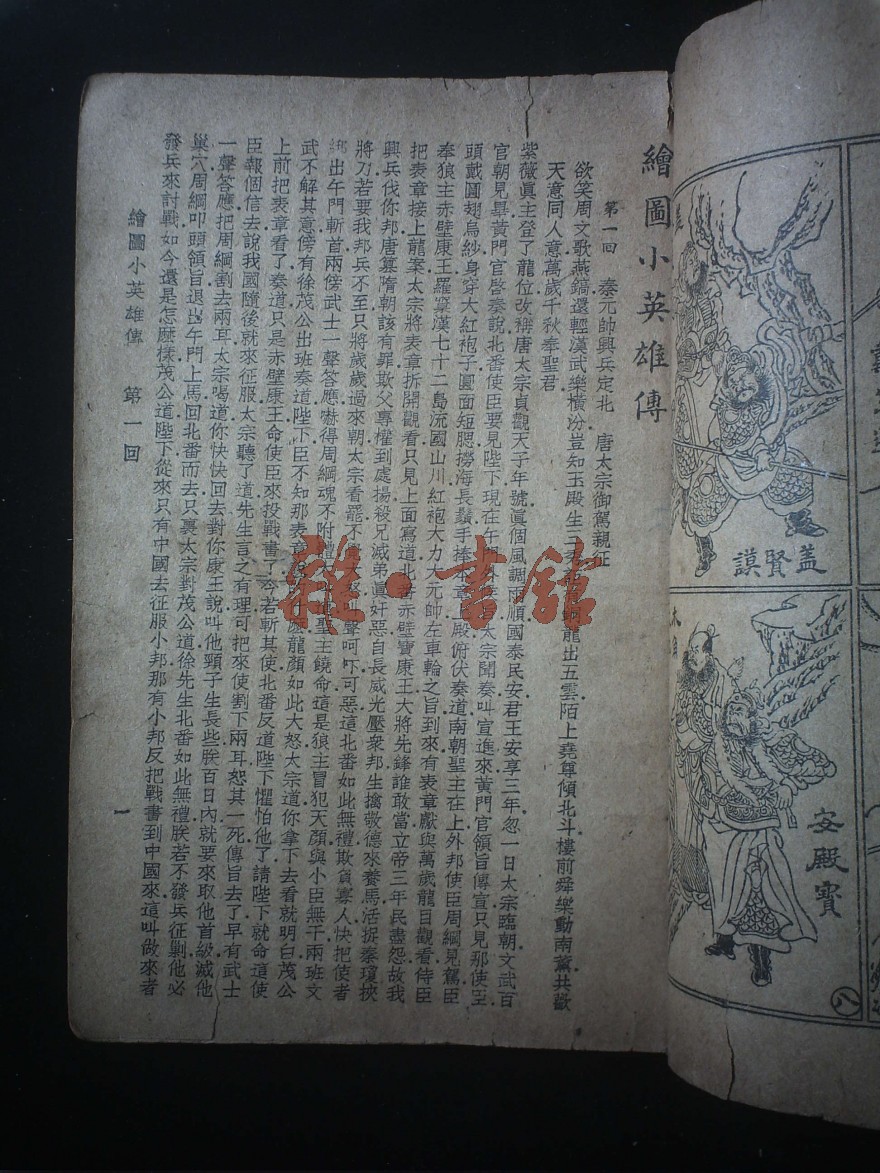 繪圖小英雄傳
第一回　秦元帥興兵定北　唐太宗御駕親征
欲笑周文歌燕鎬還輕漢武樂橫汾豈知玉殿生三秀龍出五雲陌上堯尊傾北斗樓前舜樂動南薰共歡
天意同人意萬歲千秋奉聖君
紫薇眞主登了龍位改稱唐太宗貞觀天子年號眞個風調雨順國泰民安君王安享三年忽一日太宗臨朝文武百
官朝見畢黃門官啓奏說北番使臣要見陛下現在午太宗聞奏叫宣進來黃門官領旨傳宣只見那使臣
頭戴圓翅烏紗身穿大紅袍子圓面短腮撈海長鬚手捧本章上殿俯伏奏道南朝聖主在上外邦使臣周綱見駕臣
奉狼主赤壁康王羅窠漢七十二島流國山川紅袍大力大元帥左車輪之旨到來有表章獻與萬歲龍目觀看侍臣
把表章接上龍案太宗將表章拆開觀看只見上面寫道北番赤壁寶康王大將先鋒誰敢當立帝三年民盡怨故我
興兵伐你邦唐篡隋朝該有罪欺父專權到處揚殺兄滅弟眞奸惡自長威光壓衆邦生擒敬德來養馬活捉秦瓊挾
將刀若要我邦兵不至只將歲歲過來朝太宗看罷不聲呵吓可惡這北番如此無禮欺負寡人快把使者
綁出午門斬首兩傍武士一聲答應嚇得周綱魂不附體聖主饒命這是狼主冒犯天顏與小臣無干兩班文
武不解其意傍有徐茂公出班奏道陛下臣不知那表章麽龍顏如此大怒太宗道你拿下去看就明白茂公
上前把表章看了奏道只是赤壁康王命使臣來投戰書了今若斬其使北番反道陛下懼怕他了請陛下就命道使
臣報個信去說我國隨後就來征服太宗聽了道先生言之有理可把來使割下兩耳恕其一死傳旨去了早有武士
一聲答應把周綱割去兩耳太宗喝道你快快回去對你康王說叫他頸子生長些朕百日內就要來取他首級滅他
巢穴周綱叩頭領旨退出午門上馬回北番而去只裏太宗對茂公道徐先生北番如此無禮朕若不發兵征剿他必
發兵來討戰如今還是怎麽樣茂公道陛下從來只有中國去征服小邦那有小邦反把戰書到中國來這叫做來者
繪圖小英雄傳　第一回
一
蓋賢謨
安殿寶
八
雜·書館